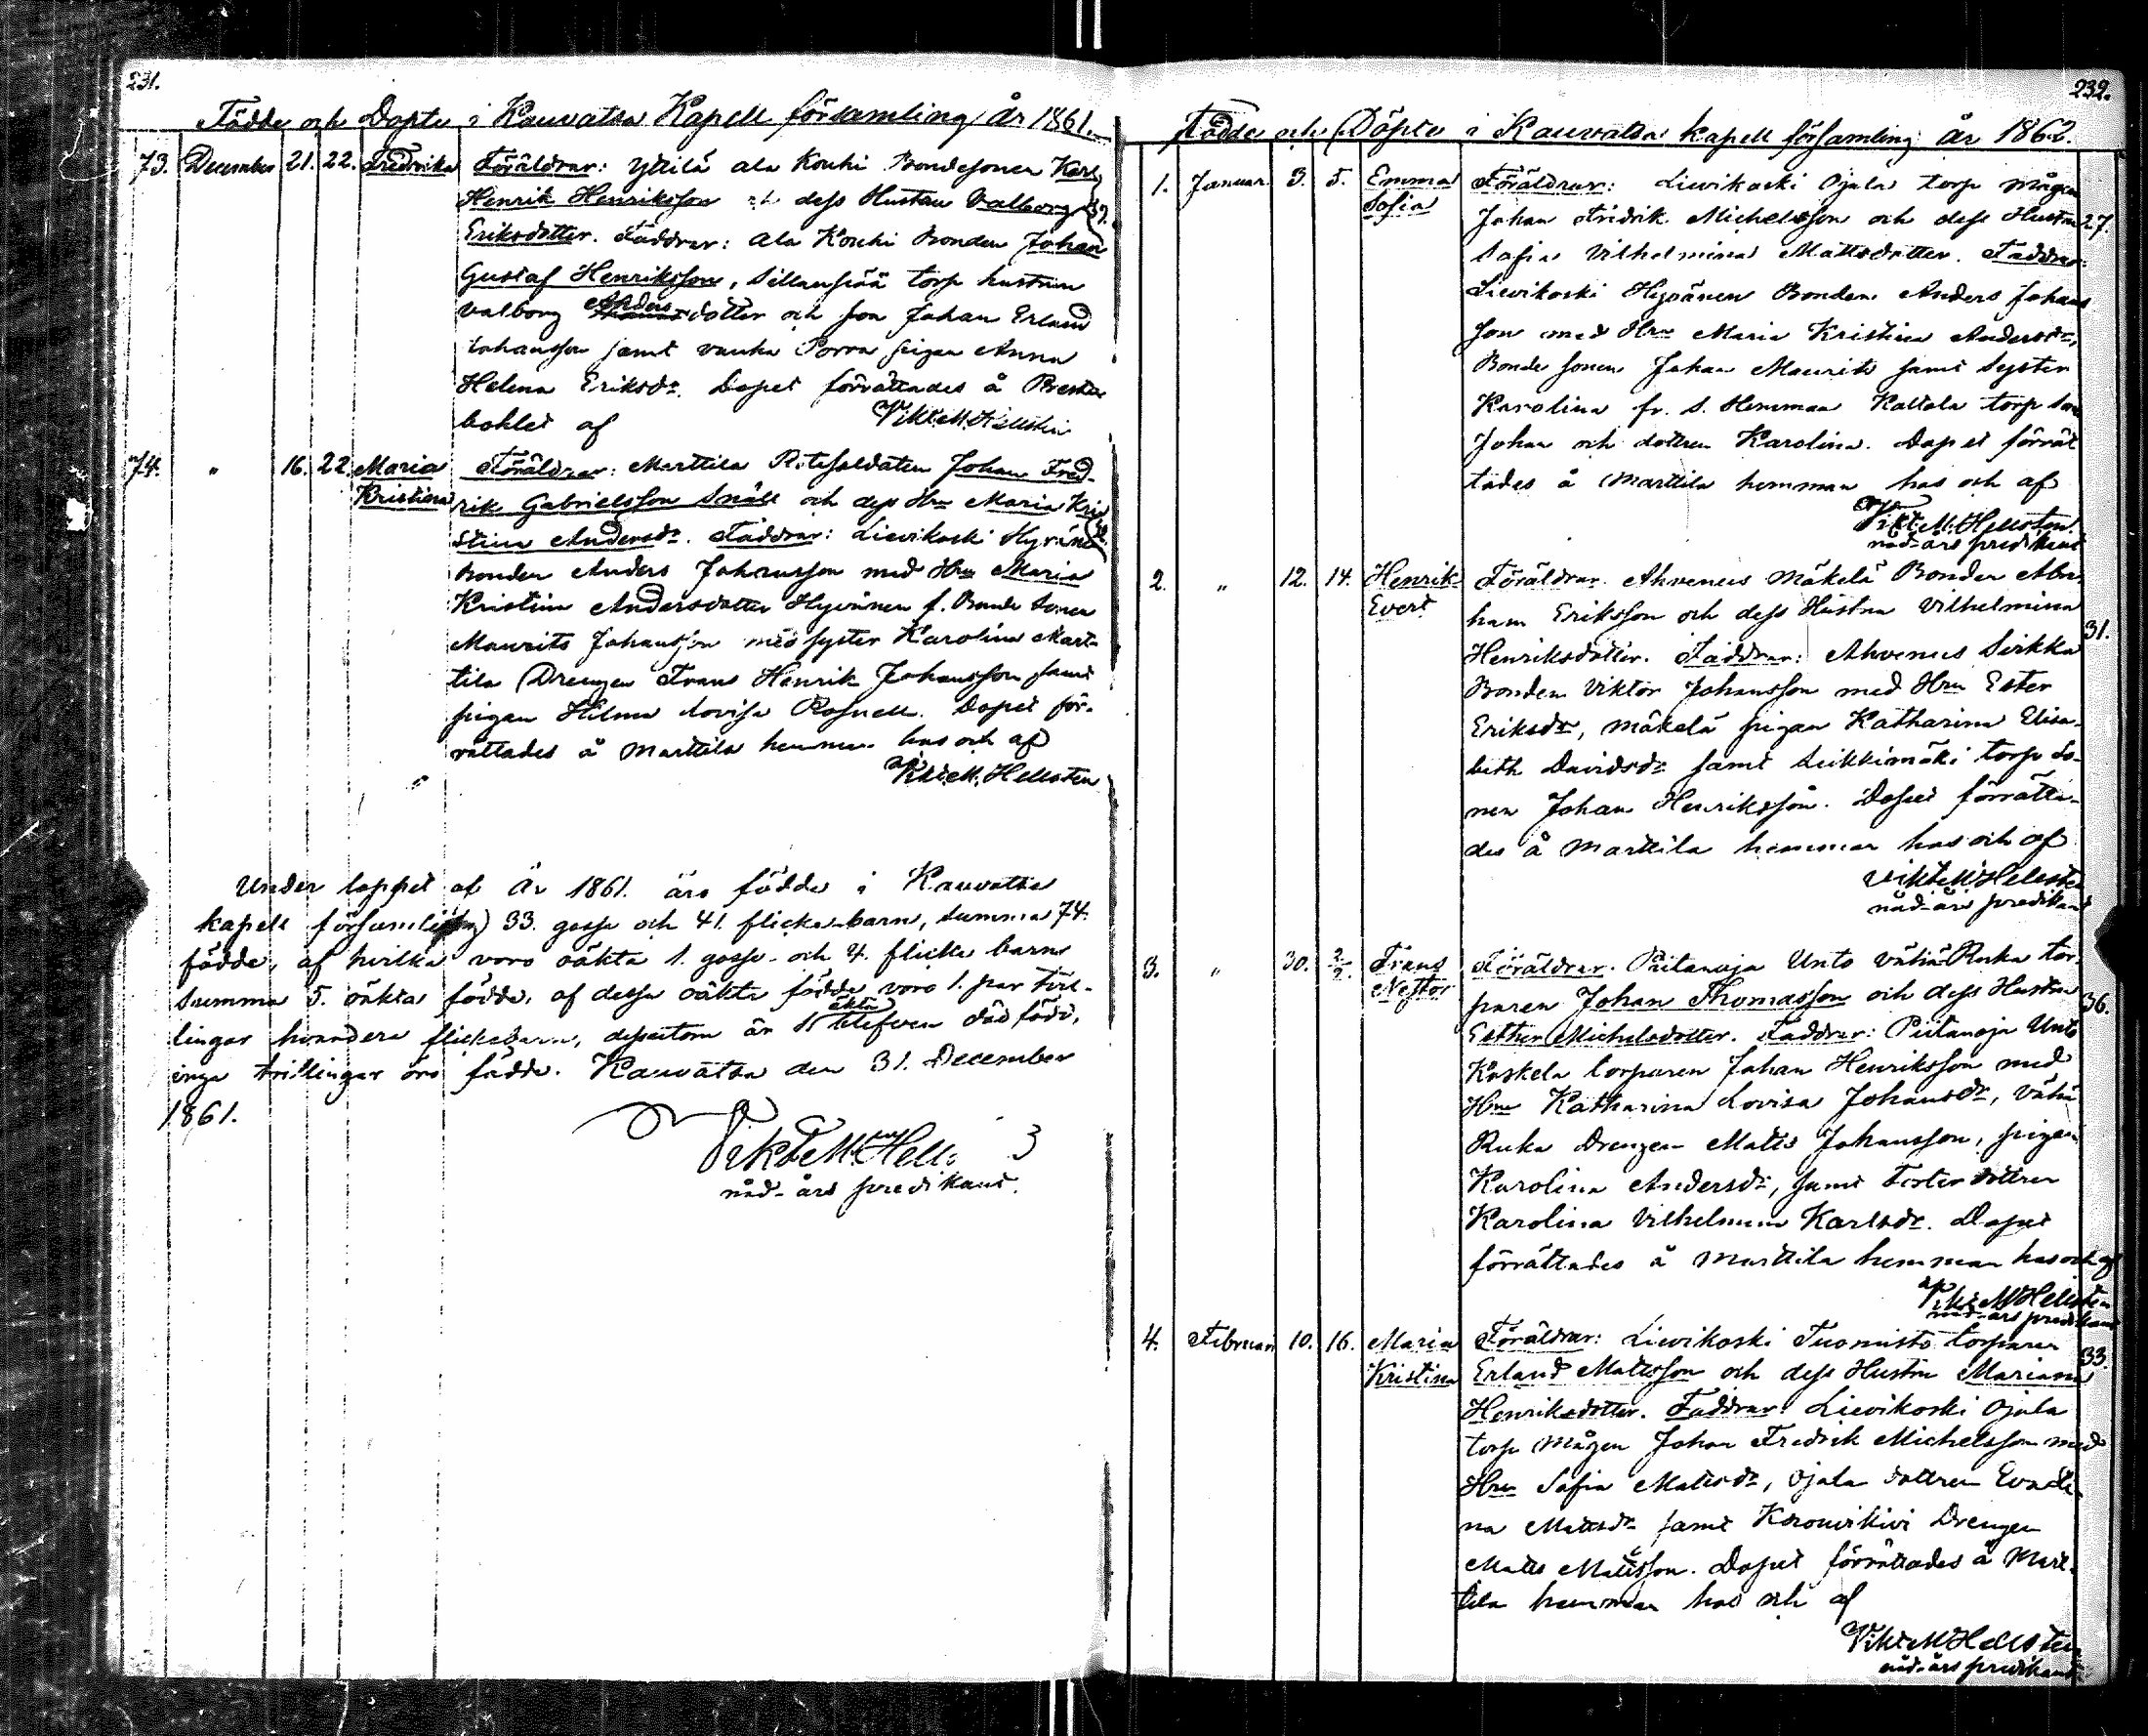 231.
Födde och Döpte i Kauvatsa Kapell församling år 1861.
73. December 21. 22. Fredrika Föräldrar: Yttilä ala Kouhi Bondesonen Karl
Henrik Henriksson och dess Hustru Valborg
Eriksdotter. Faddrar: Ala Kouhi Bonden Johan
Gustaf Henriksson, Sillanpää torp hustrun
Valborg Andersdotter och son Johan Erland
Johansson samt Porra pigan Anna
Helena Eriksdr. Dopet förrättades å
bohlet af Vikt. M. Hellstén
74. " 16. 22. Maria Kristina Föräldrar: Marttila Rotesoldaten Johan Fred-
rik Gabrielsson Snäll och dess Hru Maria Kri
stina Andersdr. Faddrar: Lievikoski Hyvänen
Bonden Anders Johansson med Hru Maria
Kristina Andersdotter Hyvänen f. Bonde Sonen
Maurits Johansson med syster Karolina Mart-
tila Drengen Frans Henrik Johansson samt
pigan Hilma Lovisa Rosnell. Dopet för-
rättades å Marttila hemman hos och af
Vikt. M. Hellsten
Under loppet af År 1861. äro födde i Kauvatsa
kapell församling 33. gosse och 41. flicke-barn, summa 74.
födde, af hvilka voro oäkta 1. gosse- och 4. flicke barn
summa 5. oäkta födde, af dessa oäkta födde voro 1. par tvil-
lingar hvardera flickebarn, dessutom är död född,
inga trillingar äro födde. Kauvatsa den 31. December
1861.
Vikt. M. Hell
nåd-års predikant.
232.
Födde och Döpte i Kauvatsa kapell församling år 1862.
1. Januari 3. 5. Emma Sofia Föräldrar: Lievikoski Ojala torp mågen
Johan Fridrik Michelsson och dess Hustru 27.
Sofia Vilhelmina Mattsdotter. Faddrar:
Lievikoski Hyvänen Bonden Anders Johans
son med Hru Maria Kristina Andersdr,
Bonde sonen Johan Maurits samt syster
Karolina fr. s. Hemman Kattala torp son
Johan och dottren Karolina. Dopet förrät
tades å Marttila hemman hos och af
Vikt. M. Hellsten
nåd-års predikant
2. " 12. 14. Henrik Evert Föräldrar. Ahvenus Mäkelä Bonden Abra
ham Eriksson och dess Hustru Vilhelmina 31.
Henriksdotter. Faddrar: Ahvenus Sirkka
Bonden Viktor Johansson med Hru Ester
Eriksdr, Mäkelä pigan Katharina Elisa-
beth Davidsdr samt Leikkimäki torp So-
nen Johan Henriksson. Dopet förrätta-
des å Marttila hemman hos och af
Vikt. M. Hellsten
nåd-års predikant
3. " 30. 2/2. Frans Nestor Föräldrar. Piitanoja Unto vähä Ruka tor-
paren Johan Thomasson och dess Hustru 36.
Esther Michelsdotter. Faddrar: Piitanoja Unto
Kaskela torparen Johan Henriksson med
Hru Katharina Lovisa Johansdr, Vähä
Ruka Drengen Matts Johansson, pigan
Karolina Andersdr, samt Foster dottren
Karolina Vilhelmina Karlsdr. Dopet
förrättades å Marttila hemman hos och af
Vikt. M. Hellsten
nåd-års predikant
4. Februari 10. 16. Maria Kristina Föräldrar: Lievikoski Tuomisto torparen
Erland Mattsson och dess Hustru Mariana 33.
Henriksdotter. Faddrar: Lievikoski Ojala
torp Mågen Johan Fredrik Michelsson med
Hru Sofia Mattsdr, Ojala dottren Evali-
na Mattsdr samt Drengen
Matts Mattsson. Dopet förrättades å Mart-
tila hemman hos och af
Vikt. M. Hellsten
nåd-års predikant